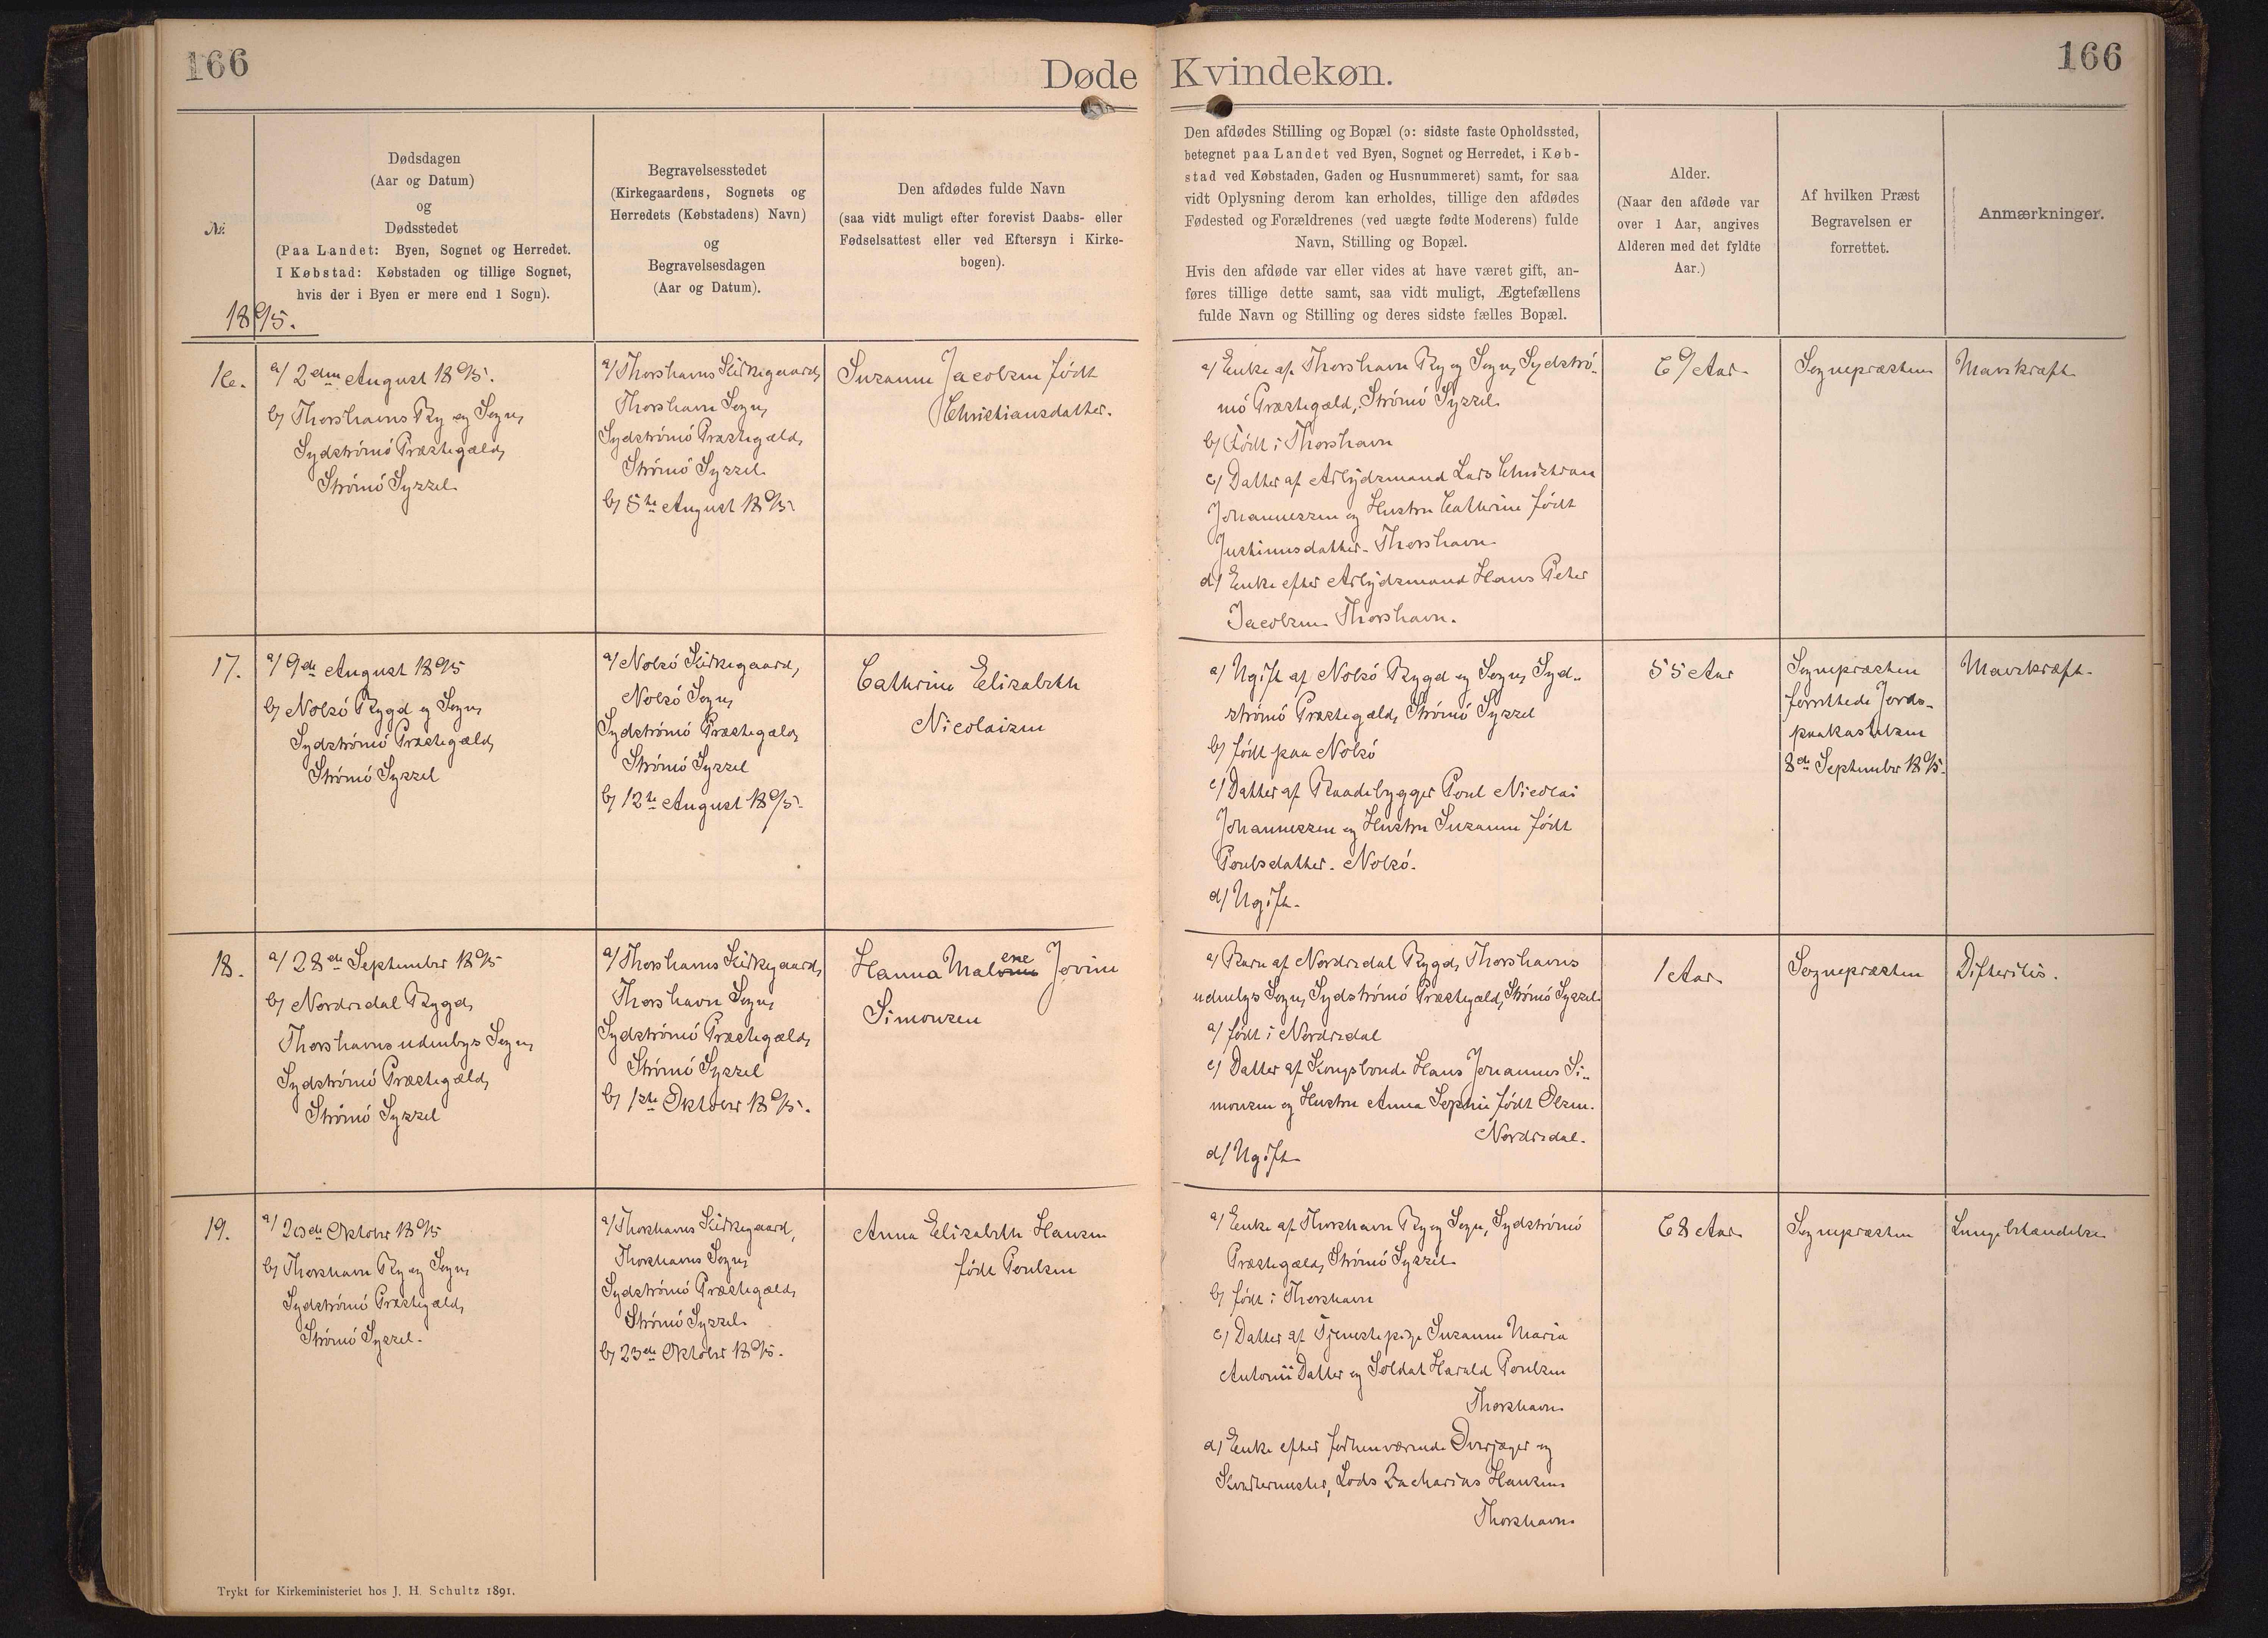 166
Døde Kvindekøn.
166
№
Dødsdagen
(Aar og Datum)
og
Dødsstedet
(Paa Landet: Byen, Sognet og Herredet.
I Købstad: Købstaden og tillige Sognet,
hvis der i Byen er mere end 1 Sogn).
Begravelsesstedet
(Kirkegaardens, Sognets og
Herredets (Købstadens) Navn)
og
Begravelsesdagen
(Aar og Datum).
Den afdødes fulde Navn
(saa vidt muligt efter forevist Daabs- eller
Fødselsattest eller ved Eftersyn i Kirke-
bogen).
Den afdødes Stilling og Bopæl (ɔ: sidste faste Opholdssted,
betegnet paa Landet ved Byen, Sognet og Herredet, i Køb-
stad ved Købstaden, Gaden og Husnummeret) samt, for saa
vidt Oplysning derom kan erholdes, tillige den afdødes
Fødested og Forældrenes (ved uægte fødte Moderens) fulde
Navn, Stilling og Bopæl.
Hvis den afdøde var eller vides at have været gift, an-
føres tillige dette samt, saa vidt muligt, Ægtefællens
fulde Navn og Stilling og deres sidste fælles Bopæl.
Alder.
(Naar den afdøde var
over 1 Aar, angives
Alderen med det fyldte
Aar.)
Af hvilken Præst
Begravelsen er
forrettet.
Anmærkninger.
1895.
16.
a/ 2den August 1895.
b/ Thorshavns By og Sogn,
Sydströmö Præstegæld,
Strömö Syssel
a/ Thorshavns Kirkegaard,
Thorshavn Sogn,
Sydströmö Præstegæld,
Strömö Syssel
b/ 5te August 1895
Susanne Jacobsen født
Christiansdatter.
a/ Enke af Thorshavn By og Sogn, Sydströ-
mö Præstegæld, Strömö Syssel
b/ Født i Thorshavn
c/ Datter af Arbejdsmand Lars Christian
Johannessen og Hustru Cathrine født
Justinusdatter. Thorshavn.
d/ Enke efter Arbejdsmand Hans Peter
Jacobsen. Thorshavn.
69 Aar
Sognepræsten
Mavekræft
17.
a/ 9de August 1895
b/ Nolsö Bygd og Sogn,
Sydströmö Præstegæld,
Strömö Syssel
a/ Nolsö Kirkegaard,
Nolsö Sogn,
Sydströmö Præstegæld,
Strömö Syssel
b/ 12te August 1895.
Cathrine Elisabeth
Nicolaisen
a/ Ugift af Nolsö Bygd og Sogn, Syd-
strömö Præstegæld, Strömö Syssel
b/ født paa Nolsö
c/ Datter af Baadebygger Poul Nicolai
Johannessen og Hustru Susanne født
Poulsdatter. Nolsö.
d/ Ugift.
55 Aar
Sognepræsten
forrettede Jords-
paakastelsen
8de September 1895.
Mavekræft.
18.
a/ 28de September 1895
b/ Nordredal Bygd,
Thorshavns udenbys Sogn,
Sydströmö Præstegæld,
Strömö Syssel
a/ Thorshavns Kirkegaard,
Thorshavn Sogn,
Sydströmö Præstegæld,
Strömö Syssel
b/ 1ste Oktober 1895.
ene
Hanna Mal Jovine
Simonsen
a/ Barn af Nordredal Bygd, Thorshavns
udenbys Sogn, Sydströmö Præstegæld, Strömö Syssel.
a/ født i Nordredal
c/ Datter af Kongsbonde Hans Johannes Si-
monsen og Hustru Anna Sophie født Olsen.
Nordredal.
d/ Ugift
1 Aar
Sognepræsten
Difteritis.
19.
a/ 20de Oktober 1895
b/ Thorshavn By og Sogn
Sydströmö Præstegæld,
Strömö Syssel.
a/ Thorshavns Kirkegaard,
Thorshavns Sogn,
Sydströmö Præstegæld,
Strömö Syssel.
b/ 23de Oktober 1895.
Anna Elisabeth Hansen
født Poulsen
a/ Enke af Thorshavn By og Sogn, Sydströmö
Præstegæld, Strömö Syssel
b/ født i Thorshavn
c/ Datter af Tjenestepige Susanne Maria
Antonii Datter og Soldat Harald Poulsen
Thorshavn
d/ Enke efter forhenværende Overjæger og
Kvartermester, Lods Zacharias Hansen
Thorshavn.
68 Aar
Sognepræsten
Lungebetændelse
Trykt for Kirkeministeriet hos J. H. Schultz 1891.